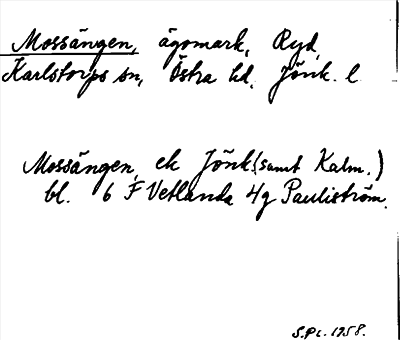 Mossängen, ägomark, Ryd,
Karlstorps sn, Östra hd. Jönk. l
Mossängen, ek Jönk. (samt Kalm.)
bl. 6 F Vetlanda 4g Pauliström.
S.Pl. 1958.